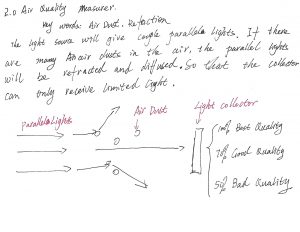 2.0 Air Quality Measurer.
Key words: Air Dust. Refraction
The light source will give couple parallel lights. If there
are many air dusts in the air, the parallel lights
will be refracted and diffused. So that the collector
can only receive limited light.
Parallel Lights
Air Dust
Light collector
100% Best Quality
70% Good Quality
50% Bad Quality